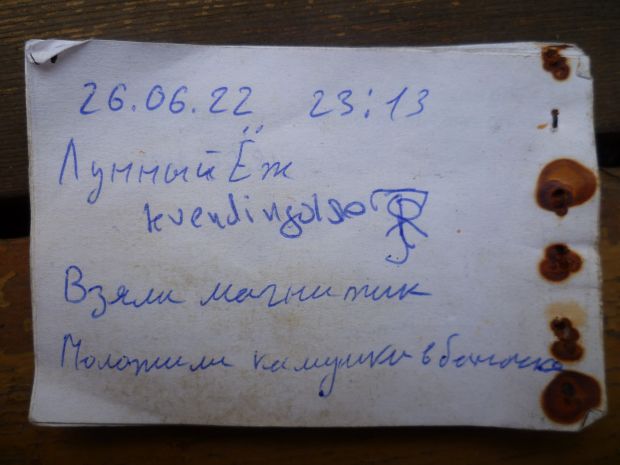 26.06.22 23:13
Лунный Ёж
kvendingoldo
Взяли магнитик
Положили камушки в баночке